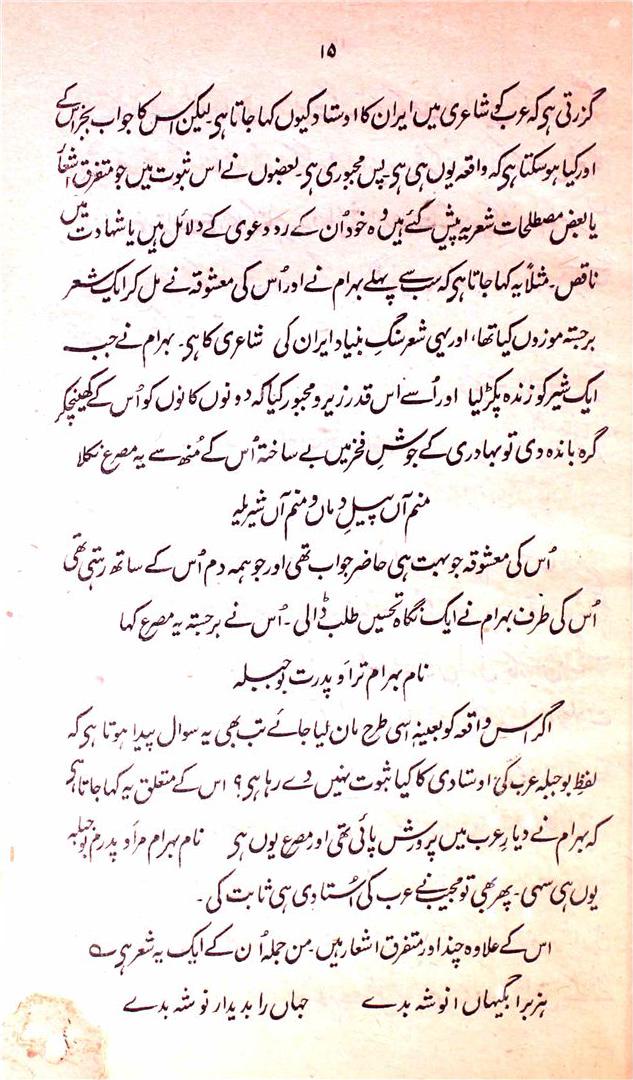 ۱۵
گزرتی ہی کہ عرب کو شاعری میں ایران کا اوستاد کیوں کہا جاتا ہی لیکن اس کا جواب بجز اس کے
اور کیا ہو سکتا ہی کہ واقعہ یوں ہی ہی۔ پس مجبوری ہی۔ بعضوں نے اس ثبوت میں جو متفرق اشعار
یا بعض مصطلحات شعریہ پیش کئے ہیں وہ خود اُن کے رد دعوی کے دلائل ہیں یا شہادت میں
ناقص۔ مثلاً یہ کہا جاتا ہی کہ سب سے پہلے بہرام نے اور اُس کی معشوقہ نے مل کر ایک شعر
برجستہ موزوں کیا تھا، اور یہی شعر سنگِ بنیاد ایران کی شاعری کا ہی۔ بہرام نے جب
ایک شیر کو زندہ پکڑ لیا اور اُسے اس قدر زیر و مجبور کیا کہ دونوں کانوں کو اُس کے کھینچکر
گرہ باندہ دی تو بہادری کے جوشِ فخر میں بے ساختہ اُس کے مُنھ سے یہ مصرع نکلا
منم آں پیلِ دماں و منم آں شیرِ یلہ
اُس کی معشوقہ جو بہت ہی حاضر جواب تھی اور جو ہمہ دم اُس کے ساتھ رہتی تھی
اُس کی طرف بہرام نے ایک نگاہ تحسیں طلب ڈالی۔ اُس نے برجستہ یہ مصرع کہا
نام بہرام ترا و پدرت بوجبلہ
اگر اس واقعہ کو بعینہٖ اسی طرح مان لیا جائے تب بھی یہ سوال پیدا ہوتا ہی کہ
لفظِ بوجبلہ عرب کی اوستادی کا کیا ثبوت نہیں دے رہا ہی؟ اس کے متعلق یہ کہا جاتا ہی
کہ بہرام نے دیارِ عرب میں پرورش پائی تھی اور مصرع یوں ہی نام بہرام مرا و پدرم بوجبلہ
یوں ہی سہی۔ پھر بھی تو مجیب نے عرب کی اُستادی ہی ثابت کی۔
اس کے علاوہ چند اور متفرق اشعار ہیں۔ من جملہ اُن کے ایک یہ شعر ہی ؎
ہزبرا بگیہاں انوشہ بدے جہاں را بدیدار نوشہ بدے